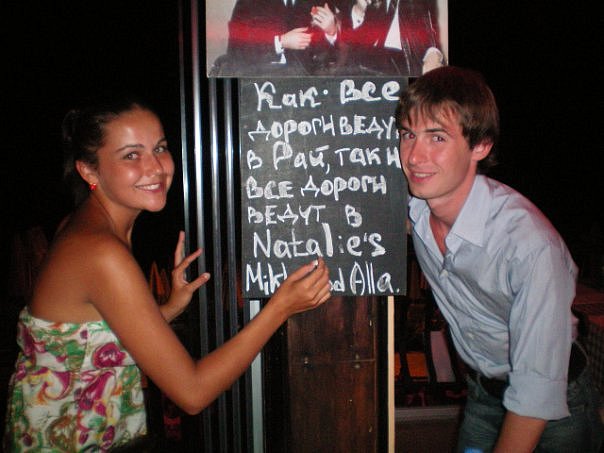 Как все
дороги веду
в Рай, так и
все дороги
ведут в
Natalie's
Alla.